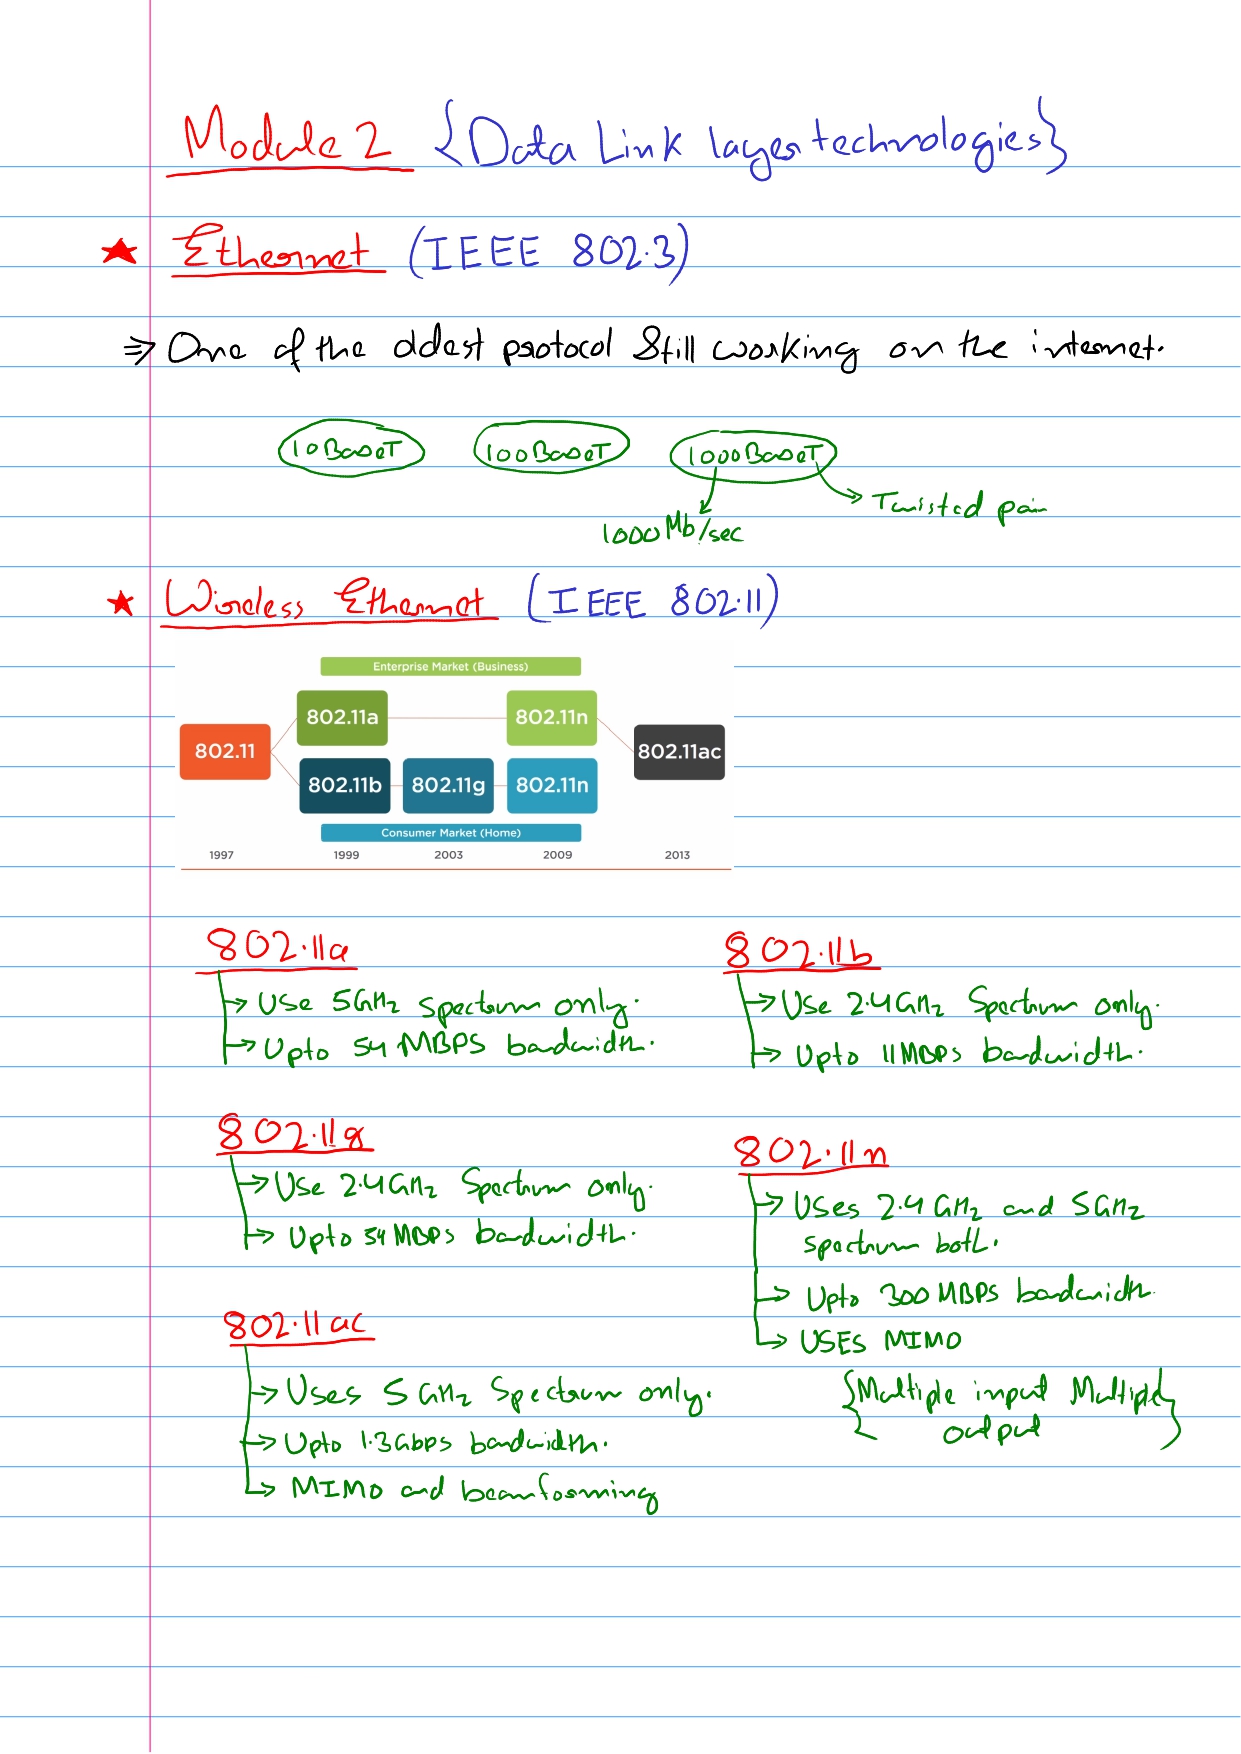 Module 2 {Data Link layer technologies}
★ Ethernet (IEEE 802.3)
⇒ One of the oldest protocol Still working on the internet.
10BaseT 100BaseT 1000BaseT
Twisted pair
1000 Mb/sec
★ Wireless Ethernet (IEEE 802.11)
Enterprise Market (Business)
802.11a 802.11n
802.11 802.11ac
802.11b 802.11g 802.11n
Consumer Market (Home)
1997 1999 2003 2009 2013
802.11a
→ Use 5GHz spectrum only.
→ Upto 54 MBPS bandwidth.
802.11b
→ Use 2.4GHz Spectrum only.
→ Upto 11MBPS bandwidth.
802.11g
→ Use 2.4GHz Spectrum only.
→ Upto 54 MBPS bandwidth.
802.11n
→ Uses 2.4 GHz and 5GHz
spectrum both.
→ Upto 300 MBPS bandwidth
→ USES MIMO
{Multiple input Multiple
output}
802.11ac
→ Uses 5 GHz Spectrum only.
→ Upto 1.3Gbps bandwidth.
→ MIMO and beamforming